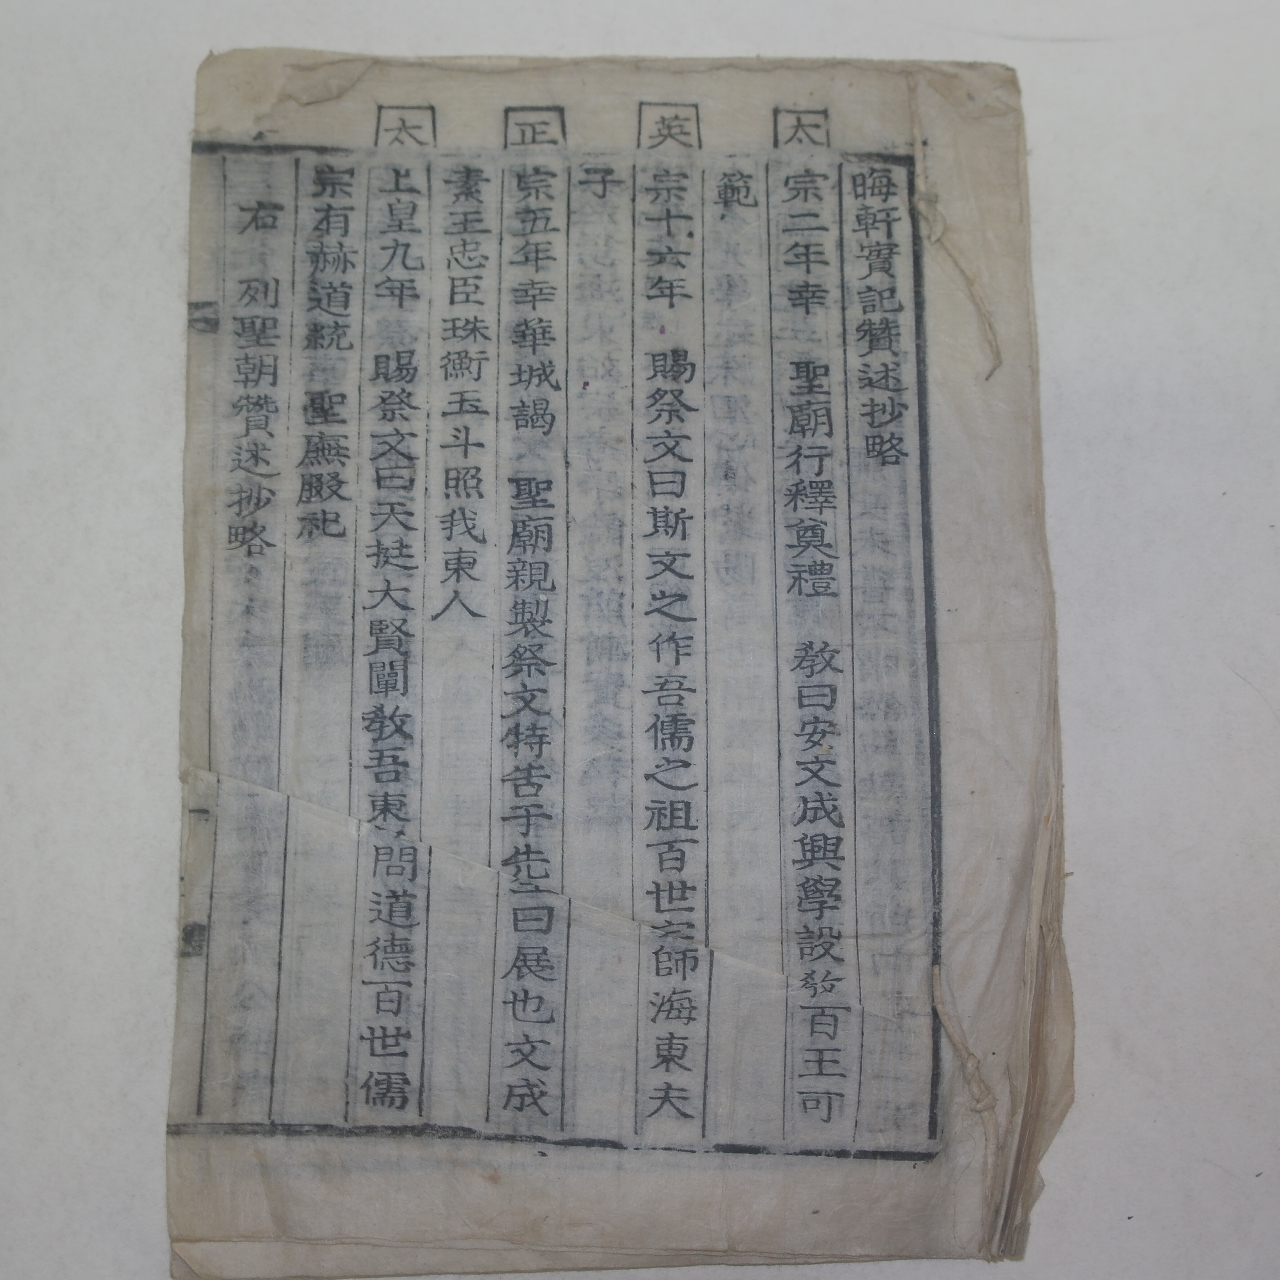 晦軒實記贊述抄略
太宗二年幸 聖廟行釋奠禮 敎曰安文成興學設敎百王可
範
英宗十六年 賜祭文曰斯文之作吾儒之祖百世宗師海東夫
子
正宗五年幸華城謁 聖廟親製祭文特告于先正曰展也文成
素王忠臣珠衡玉斗照我東人
太上皇九年 賜祭文曰天挺大賢闡敎吾東 問道德百世儒
宗有赫道統 聖廡腏祀
右 列聖朝贊述抄略